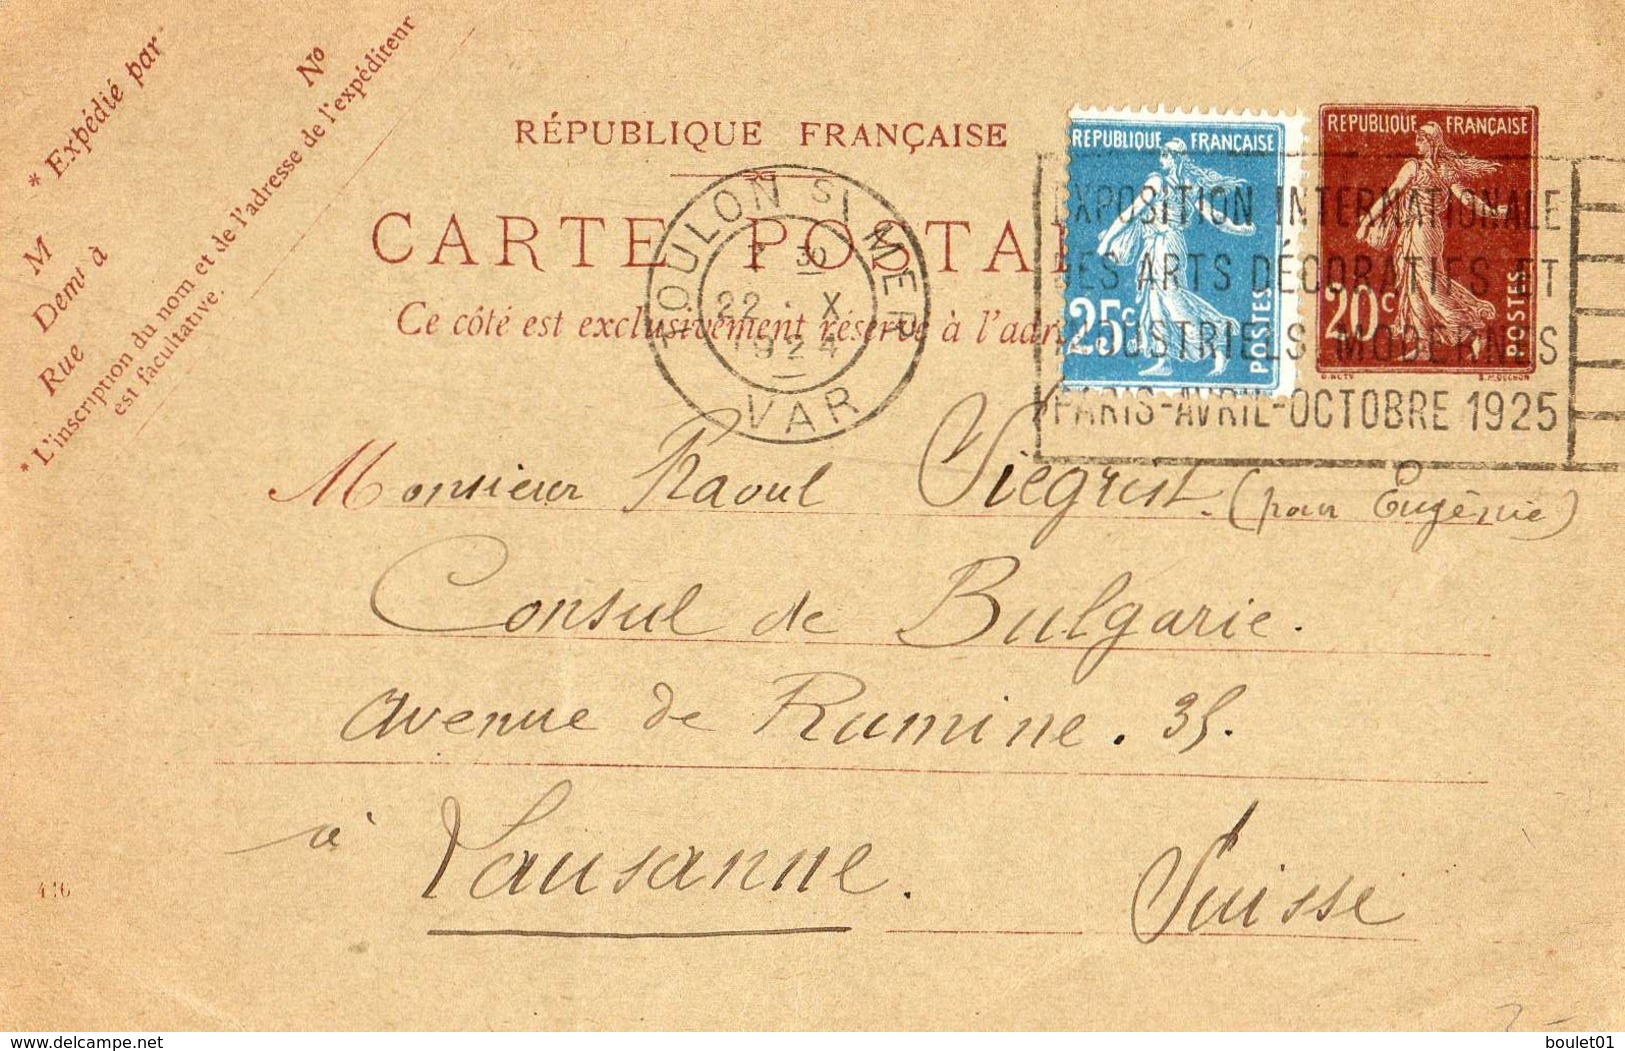 * Expédié par
M
Demt à
Rue
No
* L'inscription du nom et de l'adresse de l'expéditeur
est facultative.
RÉPUBLIQUE FRANÇAISE
CARTE POSTAL
Ce côté est exclusivement réservé à l'adr
TOULON S/ MER
22 . X
1924
VAR
REPUBLIQUE FRANÇAISE
25c
POSTES
REPUBLIQUE FRANÇAISE
20c
POSTES
EXPOSITION INTERNATIONALE
DES ARTS DÉCORATIFS ET
INDUSTRIELS MODERNES
PARIS-AVRIL-OCTOBRE 1925
Monsieur Raoul Siegrist. (pour Eugénie)
Consul de Bulgarie.
avenue de Rumine. 35.
à Lausanne. Suisse
446
delcampe.net
boulet01